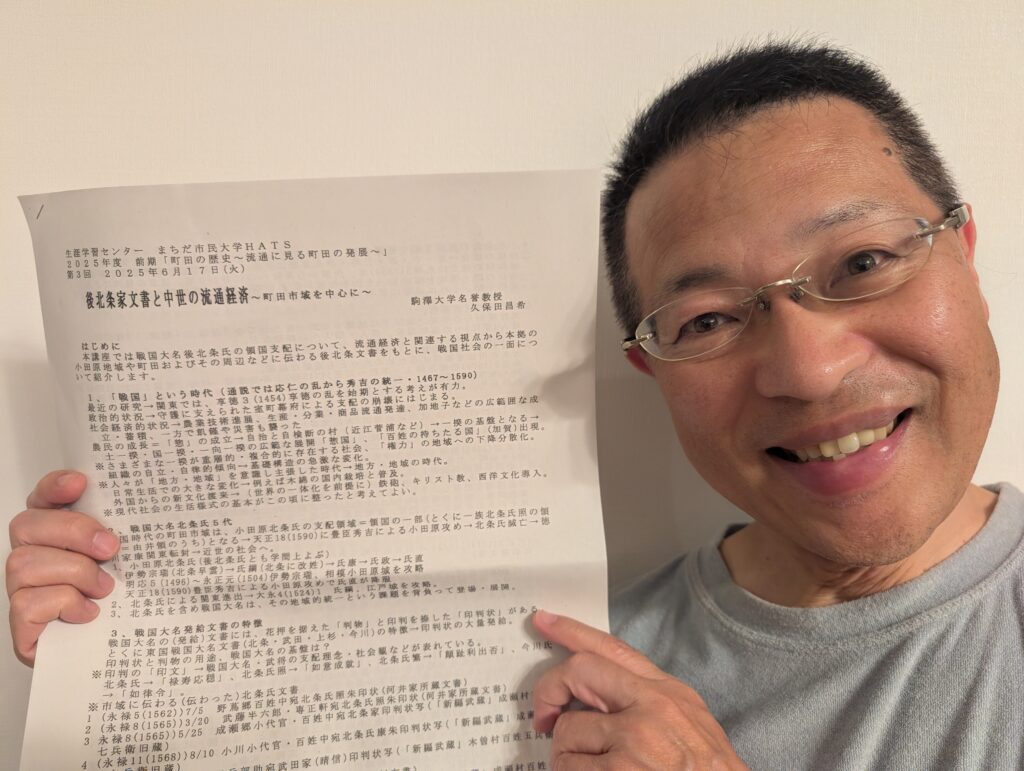 生涯学習センター　まちだ市民大学HATS
2025年度　前期「町田の歴史～流通に見る町田の発展～」
第3回　2025年6月17日(火)
後北条家文書と中世の流通経済～町田市域を中心に～
駒澤大学名誉教授
久保田昌希
はじめに
本講座では戦国大名後北条氏の領国支配について、流通経済と関連する視点から本拠の
小田原地域や町田およびその周辺などに伝わる後北条文書をもとに、戦国社会の一面につ
いて紹介します。
1、「戦国」という時代（通説では応仁の乱から秀吉の統一・1467～1590）
最近の研究→関東では、享徳3(1454)享徳の乱を始期とする考えが有力。
政治的状況→守護に支えられた室町幕府による支配の崩壊にはじまる。
社会経済的状況→農業技術進展、生産・分業・商品流通発達、加地子などの広範囲な成
立・蓄積、一方で飢饉や災害も襲った
農民の成長＝「惣」の成立→自治と自検断の村（近江菅浦など）→一揆の基盤となる→
土一揆・国一揆・一向一揆の広範な展開「惣国」、「百姓の持ちたる国」(加賀)出現。
※さまざまな一揆が重層的・複合的に存在する社会、「権力」の地域への下降分散化。
組織の自立・自律的傾向→基礎構造の急激な変化。
※人々が「地方・地域」を意識し主張した時代→地方・地域の時代。
日常生活での大きな変化→例えば木綿の国内栽培と普及。
外国からの新文化渡来→（世界の一体化を前提に）鉄砲、キリスト教、西洋文化導入。
※現代社会の生活様式の基本がこの頃に整ったと考えてよい。
2、戦国大名北条氏5代
国時代の町田市域は、小田原北条氏の支配領域＝領国の一部(とくに一族北条氏照の
＝由井領のうち)となる→天正18(1590)に豊臣秀吉による小田原攻め→北条氏滅亡→徳
川家康関東転封→近世の社会へ。
1、小田原北条氏(後北条氏とも学問上よぶ)
伊勢宗瑞(北条早雲)→氏綱(北条に改姓)→氏康→氏政→氏直
明応5(1496)～永正元(1504)伊勢宗瑞、相模小田原城を攻略
天正18(1590)豊臣秀吉による小田原攻めで氏直が降服
2、北条氏による関東進出→大永4(1524)1　氏綱、江戸城を攻略。
3、北条氏を含め戦国大名は、その地域的統一という課題を背負って登場・展開。
3、戦国大名発給文書の特徴
戦国大名の(発給)文書には、花押を据えた「判物」と印判を捺した「印判状」がある
とくに東国戦国大名文書(北条・武田・上杉・今川)の特徴→印判状の大量発給。
印判状と判物の用途、戦国大名の基盤は？
※印判の「印文」→戦国大名・武将の支配理念・社会観などが表れている。
北条氏→「禄寿応穏」、北条氏照→「如意成就」、北条氏繁→「顚趾利出否」、今川氏
→「如律令」。
※市域に伝わる(伝わった)北条氏文書
1 (永禄5(1562))7/5　野蔦郷百姓中宛北条氏照朱印状(河井家所蔵文書)
2 (永禄8(1565))3/20　武藤半六郎・専正軒宛北条氏照朱印状(河井家所蔵文書)
3 永禄8(1565))5/25　成瀬郷小代官・百姓中宛北条家印判状写(「新編武蔵」成瀬村
七兵衛旧蔵)
4 (永禄11(1568))8/10 小川小代官・百姓中宛北条氏康朱印判状写(「新編武蔵」成
兵部助宛武田家(晴信)印判状写(「新編武蔵」木曽村百姓五兵衛